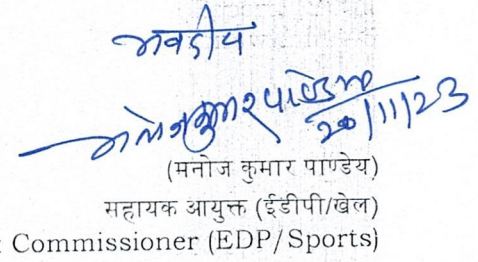 भवदीय
मनोज कुमार पाण्डेय
20/11/23
(मनोज कुमार पाण्डेय)
सहायक आयुक्त (ईडीपी/खेल)
Commissioner (EDP/Sports)